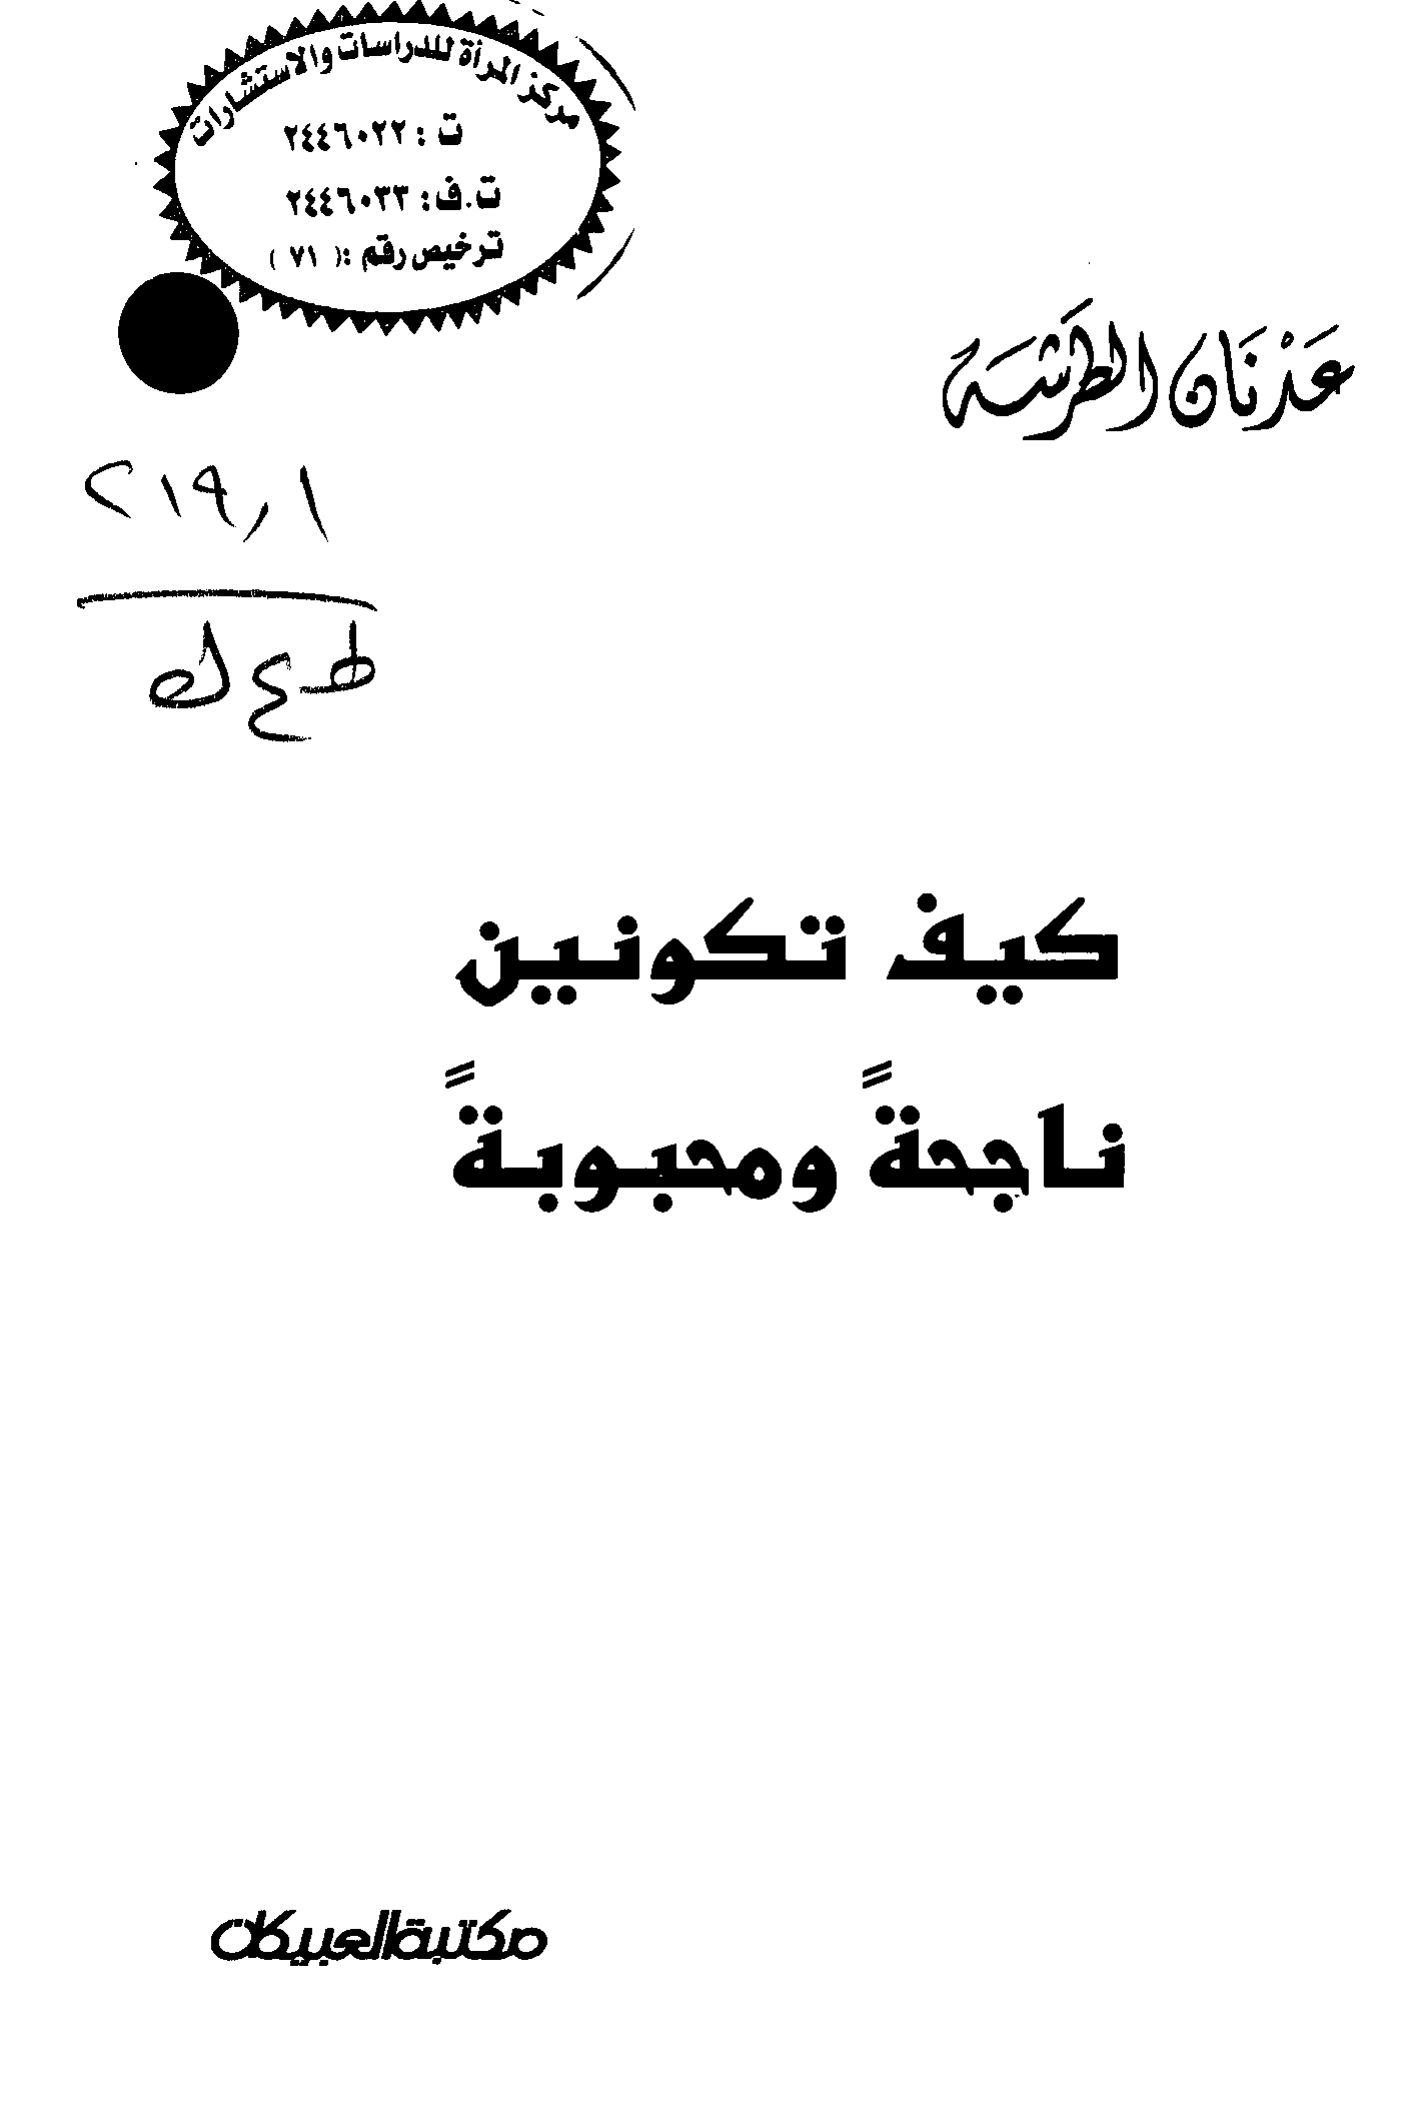 مركز المرأة للدراسات والاستشارات
ت : ٢٤٤٦٠٢٢
ت.ف: ٢٤٤٦٠٣٣
ترخيص رقم :( ٧١ )
عَدْنَان الطَرشه
٢١٩,١
ط ع ك
كيف تكونين
ناجحةً ومحبوبةً
مكتبة العبيكان